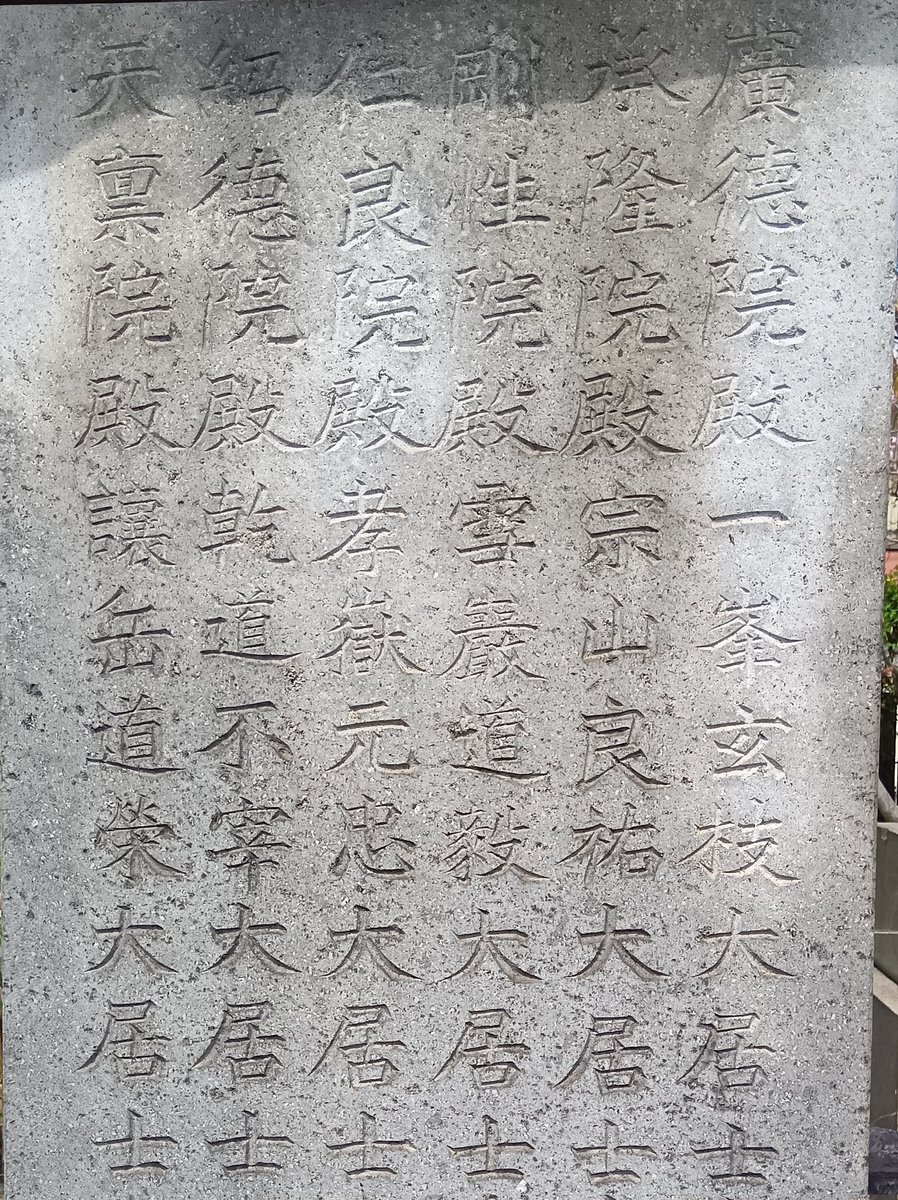 廣德院殿一峯玄枝大居士
承隆院殿宗山良祐大居士
剛性院殿雪巖道毅大居士
仁良院殿孝嶽元忠大居士
紹德院殿乾道不宰大居士
天稟院殿讓岳道榮大居士